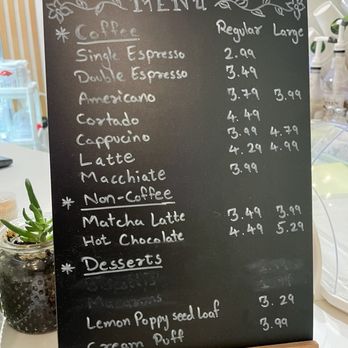 MENU
* Coffee Regular Large
Single Espresso 2.99
Double Espresso 3.49
Americano 3.79 3.99
Cortado 4.49
Cappucino 3.99 4.79
Latte 4.29 4.99
Macchiate 3.99
* Non-Coffee
Matcha Latte 3.49 3.99
Hot Chocolate 4.49 5.29
* Desserts
Macarons
Lemon Poppy seed loaf 3.29
Cream Puff 3.99